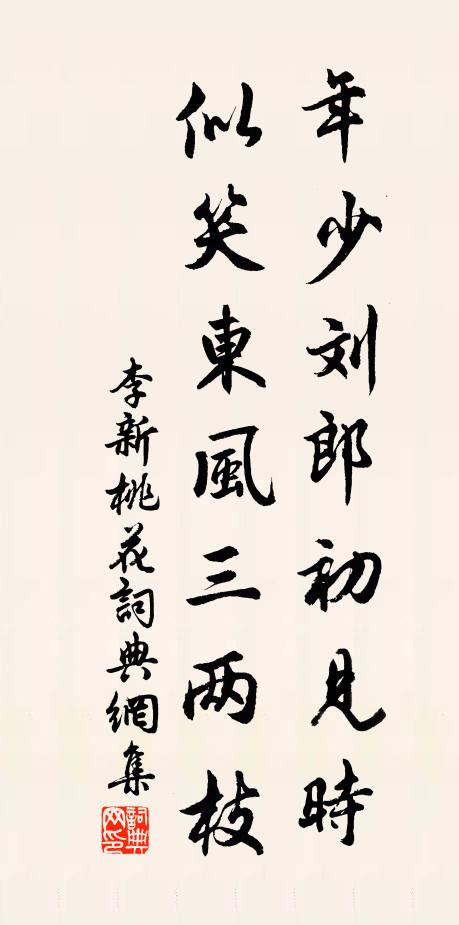 年少刘郎初見時
似笑東風三两枝
李新桃花詞典網集
詞典网印